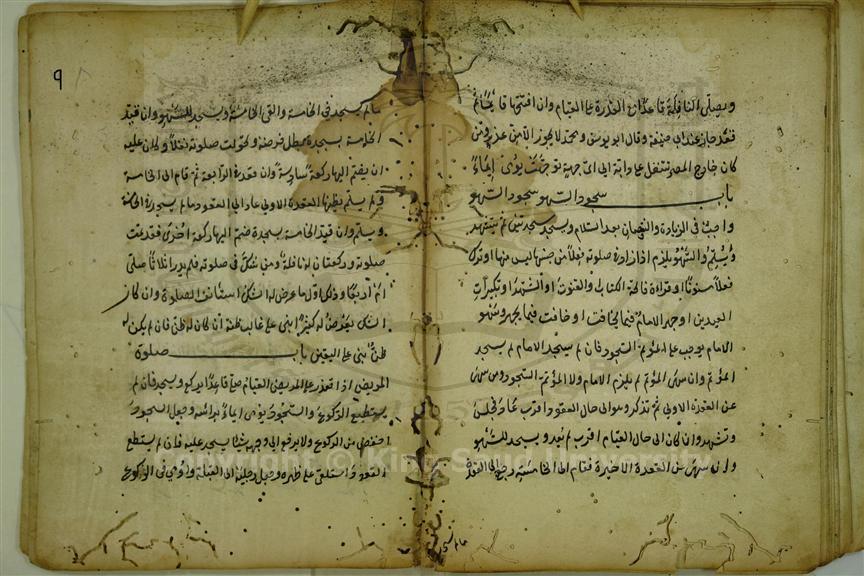 ويصلي النافلة قاعدا مع القدرة على القيام وان افتتحها قائما ثم
قعد جاز عند ابي حنيفة وقال ابو يوسف ومحمد لا يجوز الا من عذر ومن
كان خارج المصر تنفل على دابة الى اي جهة توجهت يومي ايماءً
باب سجود السهو سجود السهو
واجب في الزيادة والنقصان بعد السلام ويسجد سجدتين ثم يتشهد
ويسلم والسهو يلزم اذا زاد في صلوته فعلا من جنسها ليس منها او ترك
فعلا مسنونا او قراءة فاتحة الكتاب او القنوت او التشهد او تكبيرات
العيدين او جهر الامام فيما يخافت او خافت فيما يجهر وسهو
الامام يوجب على المؤتم السجود فان لم يسجد الامام لم يسجد
المؤتم وان سهى المؤتم لم يلزم الامام ولا المؤتم السجود ومن سهى
عن القعدة الاولى ثم تذكر وهو الى حال القعود اقرب عاد فجلس
وتشهد وان كان الى حال القيام اقرب لم يعد ويسجد للسهو
وان سهى عن القعدة الاخيرة فقام الى الخامسة رجع الى القعدة
٩
مالم يسجد في الخامسة والقى الخامسة ويسجد للسهو وان قيد
الخامسة بسجدة بطل فرضه وتحولت صلوته نفلا وكان عليه
ان يضم اليها ركعة سادسة وان قعد في الرابعة ثم قام الى الخامسة
ولم يسلم يظنها القعدة الاولى عاد الى القعود مالم يسجد في الخامسة
ويسلم وان قيد الخامسة بسجدة ضم اليها ركعة اخرى فقد تمت
صلوته وركعتان له نافلة ومن شك في صلوته فلم يدر اثلاثا صلى
ام اربعا وذلك اول ما عرض له الشك استأنف الصلوة وان كان
الشك يعرض له كثيرا بنى على غالب ظنه ان كان له ظن فان لم يكن له
ظن بنى على اليقين باب صلوة
المريض اذا تعذر على المريض القيام صلى قاعدا يركع ويسجد فان لم
يستطع الركوع والسجود يومي ايماء برأسه وجعل السجود
اخفض من الركوع ولا يرفع الى وجهه شئا يسجد عليه فان لم يستطع
القعود استلقى على ظهره وجعل رجليه الى القبلة واومى في الركوع